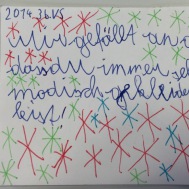 2014, 26KS
Mir gefällt an dir
dass du immer so
modisch gekleidet
bist!